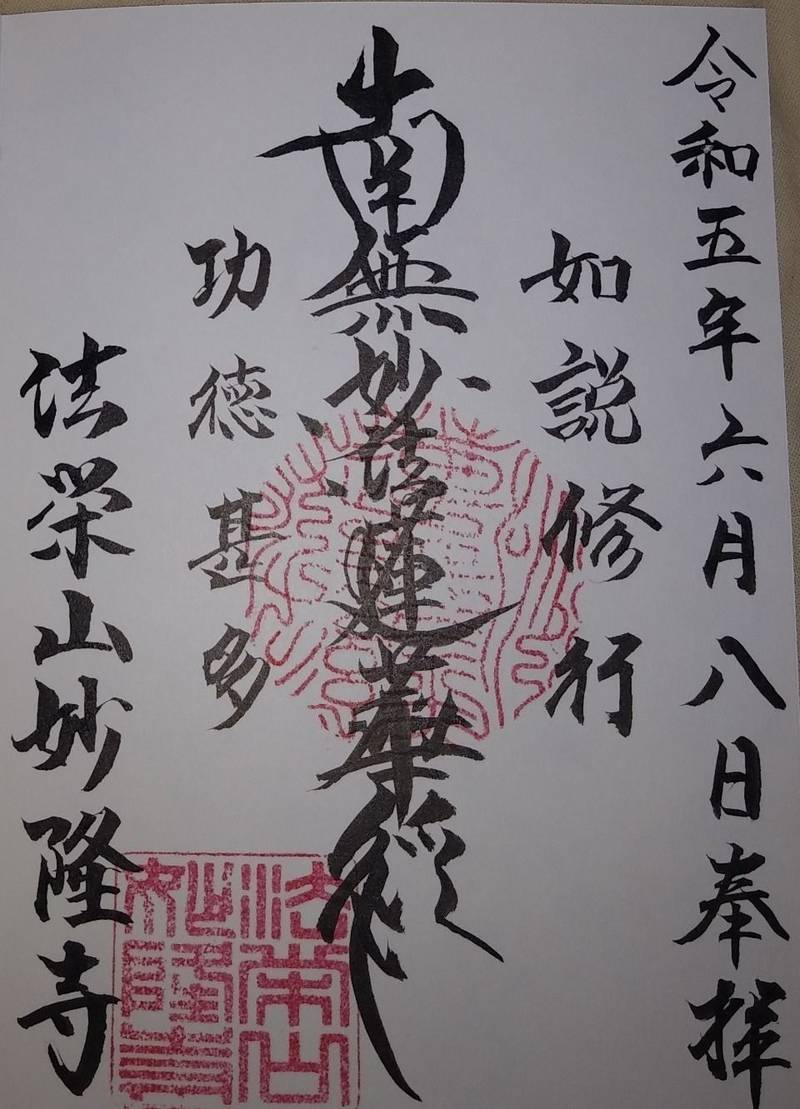 令和五年六月八日奉拝
如説修行
南無妙法蓮華経
功徳甚多
法栄山妙隆寺
法栄山
妙隆寺